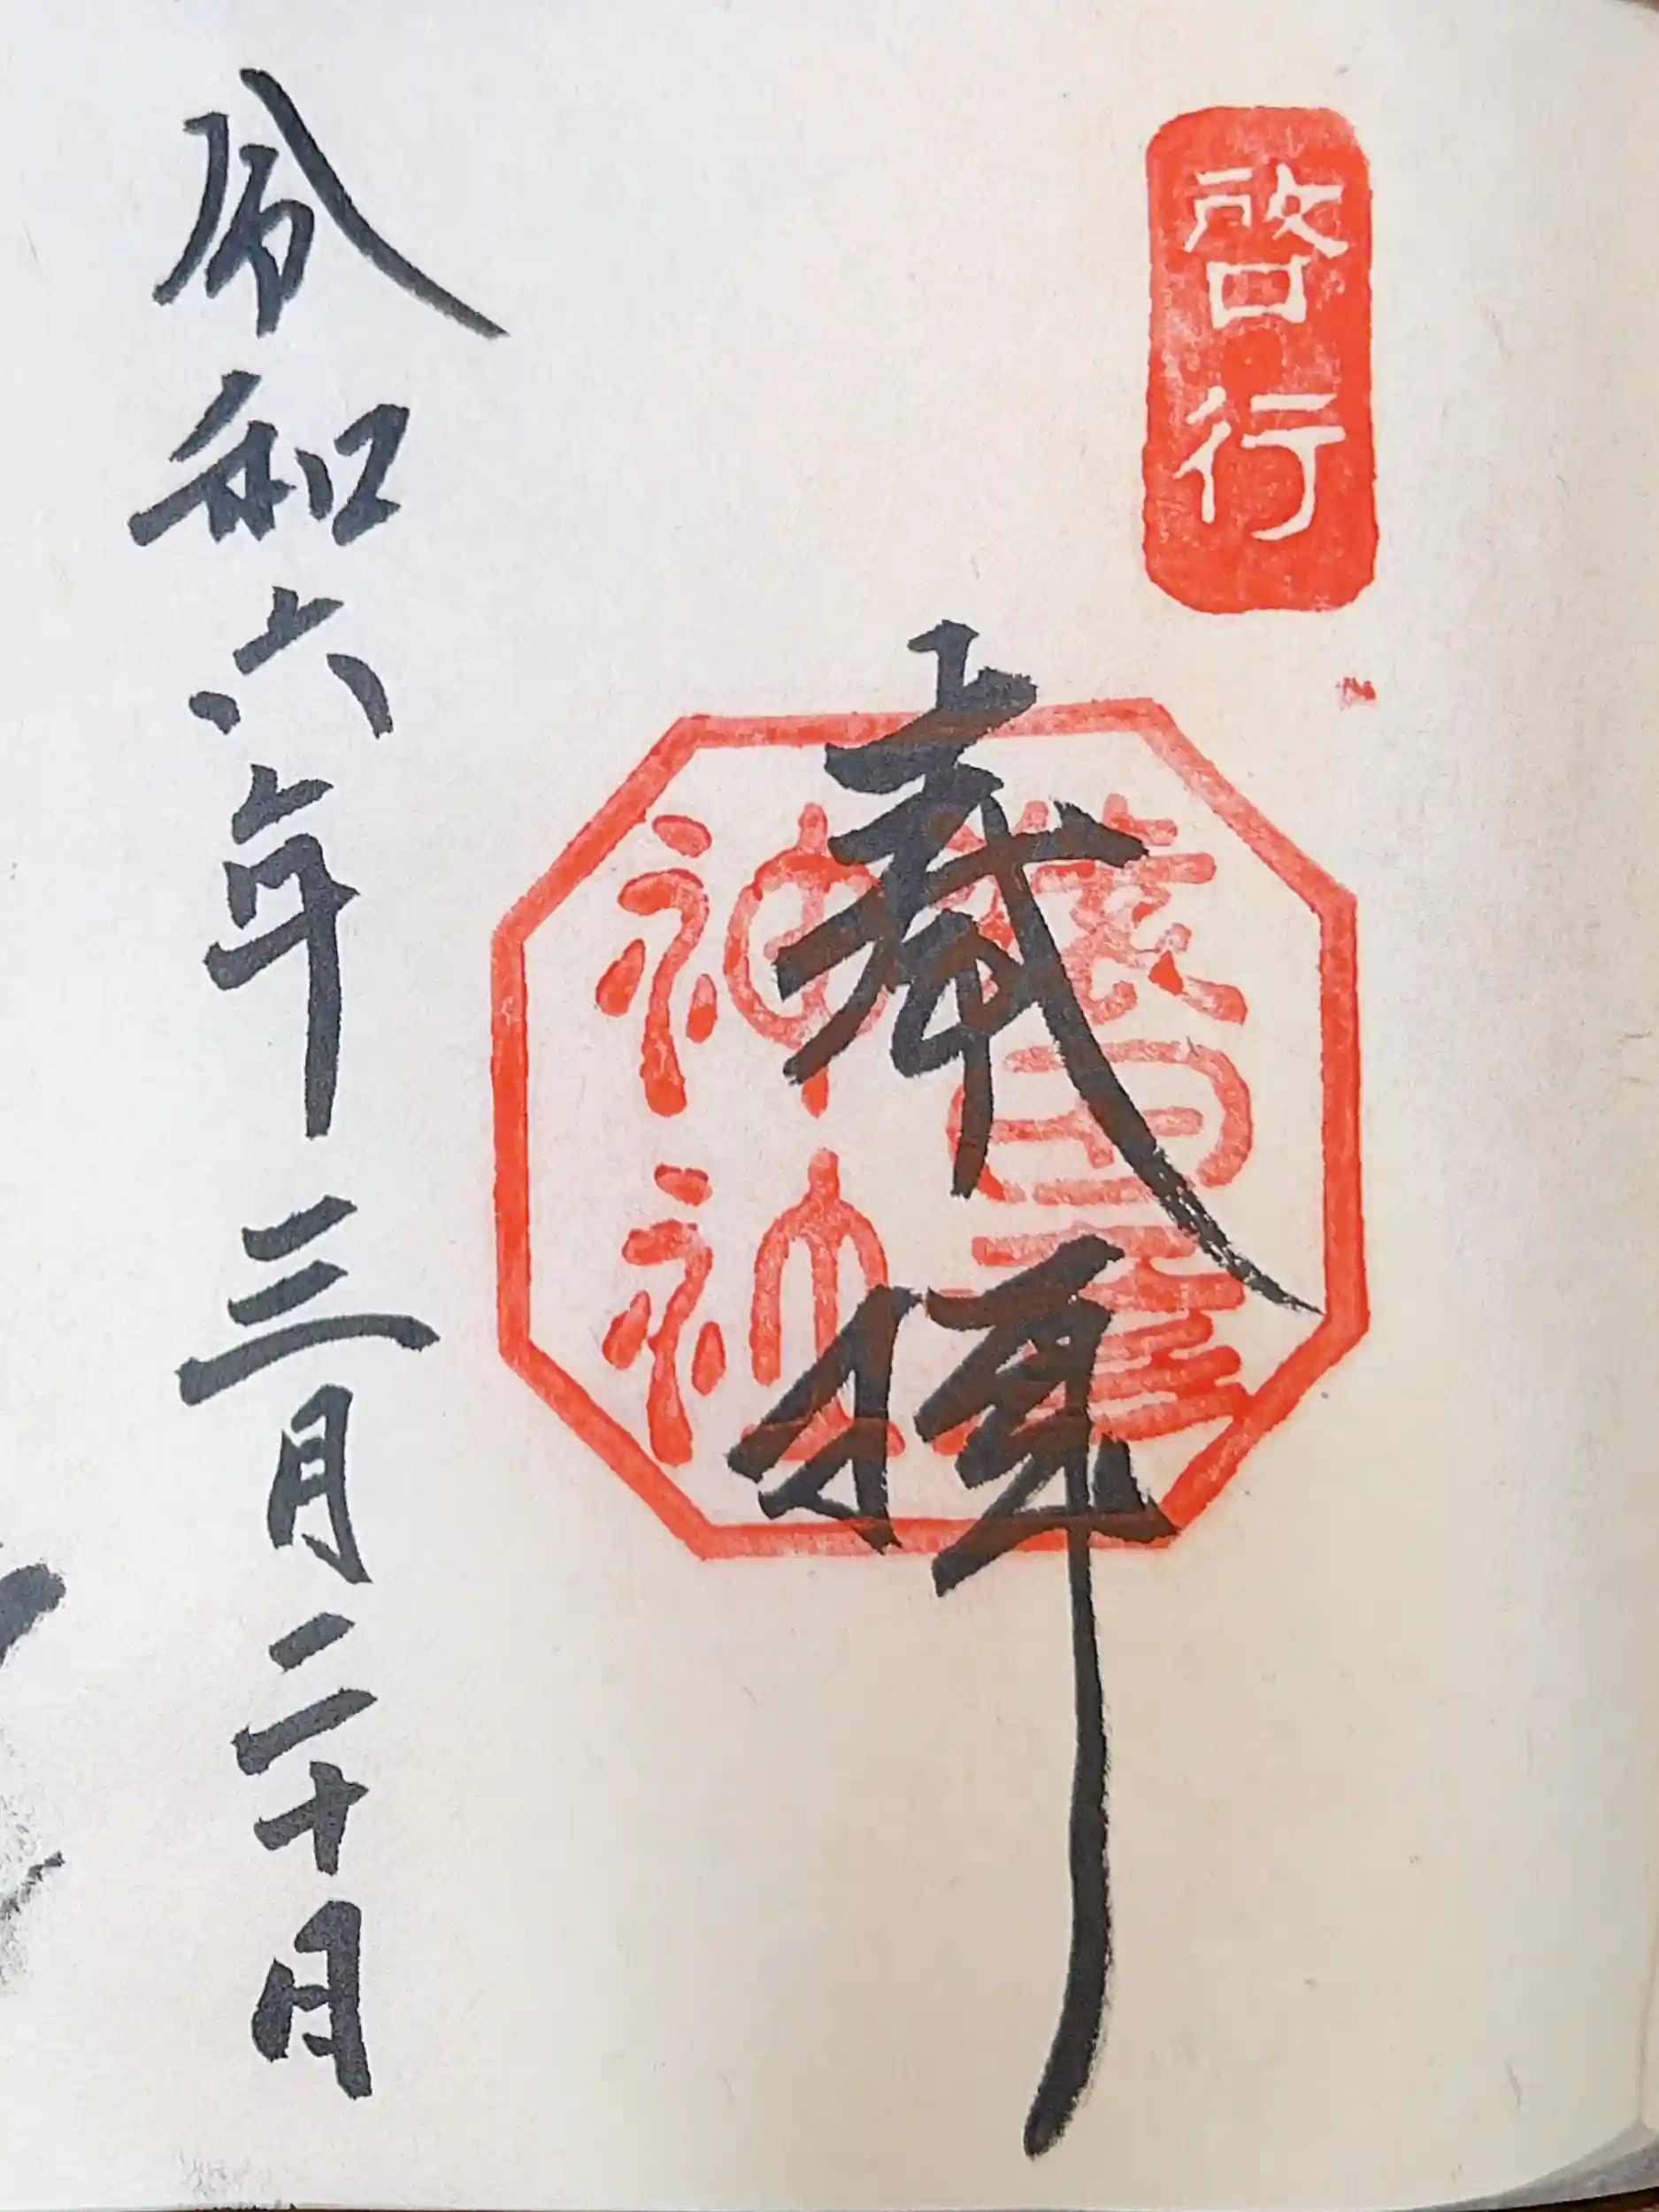 啓行
奉拝
猿田彦
神社
令和六年三月二十日